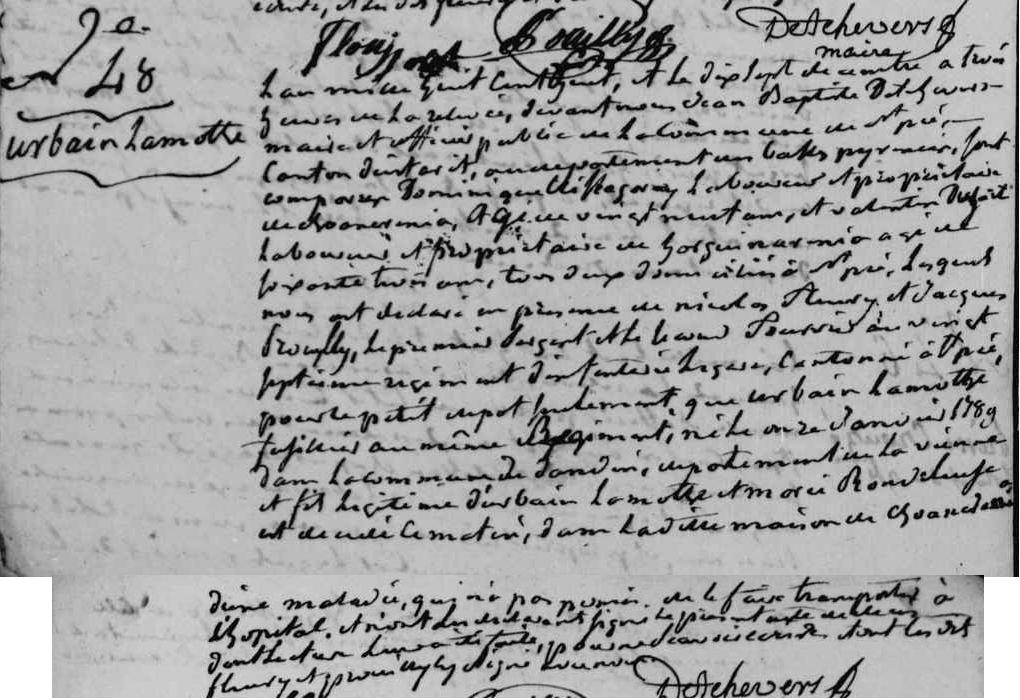 9e.
48
urbain Lamothe
Fleury Prouilly Detchevers
maire
L'an mil huit cent huit, et le dix sept décembre a trois
heures de la relevée, devant nous Jean Baptiste Detchevers
maire et officier public de la commune de St pié,
Canton d'ustarit, au département des bases pyrenées, sont
comparus Dominique laboureur et propriétaire
de agé de vingt neuf ans, et valentin
laboureur et propriétaire de agé de
soixante trois ans, tous deux domiciliés à St pié, lesquels
nous ont déclaré en présence de nicolas fleury et Jacques
Prouilly, le premier sergent et le second fourrier au vingt
septième régiment d'infanterie légère, Cantonné à St pié,
pour le petit depot seulement que urbain Lamothe
fusilier au même Régiment, né le onze Janvier 1789
dans la commune de departement de la vienne
et fils légitime d'urbain Lamothe et marie
est décédé ce matin, dans la ditte maison de
d'une maladie, qui n'a pas permis de le faire transporter à
l'hopital, et n'ont les déclarants signé le présent acte
dont lecture leur a été faite, pour ne savoir écrire et ont les dits
fleury et prouilly signé avec nous
Detchevers